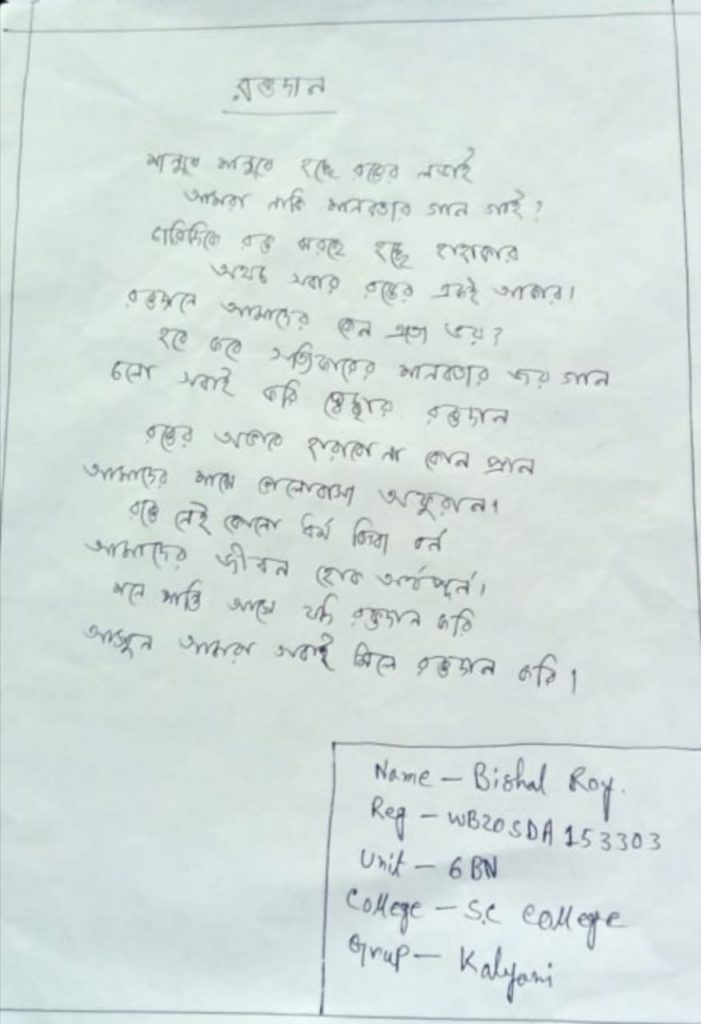 রক্তদান
মানুষে মানুষে হচ্ছে রক্তের লড়াই
আমরা নাকি মানবতার গান গাই?
চারিদিকে রক্ত ঝরছে হচ্ছে হাহাকার
অথচ সবার রক্তের একই আকার।
রক্তদানে আমাদের কেন এতো ভয়?
হবে কবে সত্যিকারের মানবতার জয় গান
চলো সবাই করি স্বেচ্ছায় রক্তদান
রক্তের অভাবে হারাবো না কোন প্রান
আমাদের মাঝে ভালোবাসা অফুরান।
রক্তে নেই কোনো ধর্ম কিংবা বর্ন
আমাদের জীবন হোক অর্থপূর্ন।
মনে শান্তি আসে যদি রক্তদান করি
আসুন আমরা সবাই মিলে রক্তদান করি।
Name - Bishal Roy.
Reg - WB20SDA153303
Unit - 6 BN
College - S.C College
Grup - Kalyani